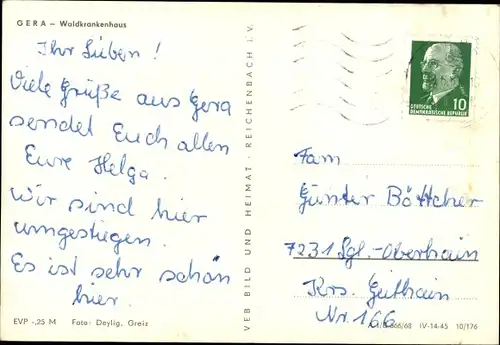 GERA – Waldkrankenhaus
Ihr Lieben!
Viele Grüße aus Gera
sendet Euch allen
Eure Helga.
Wir sind hier
umgestiegen.
Es ist sehr schön
hier.
EVP -,25 M Foto: Deylig, Greiz
VEB BILD UND HEIMAT · REICHENBACH i. V.
10
DEUTSCHE
DEMOKRATISCHE REPUBLIK
Fam
Günter Böttcher
7231 Sgl.-Oberhain
Krs. Geithain
Nr. 166
666/68 IV-14-45 10/176